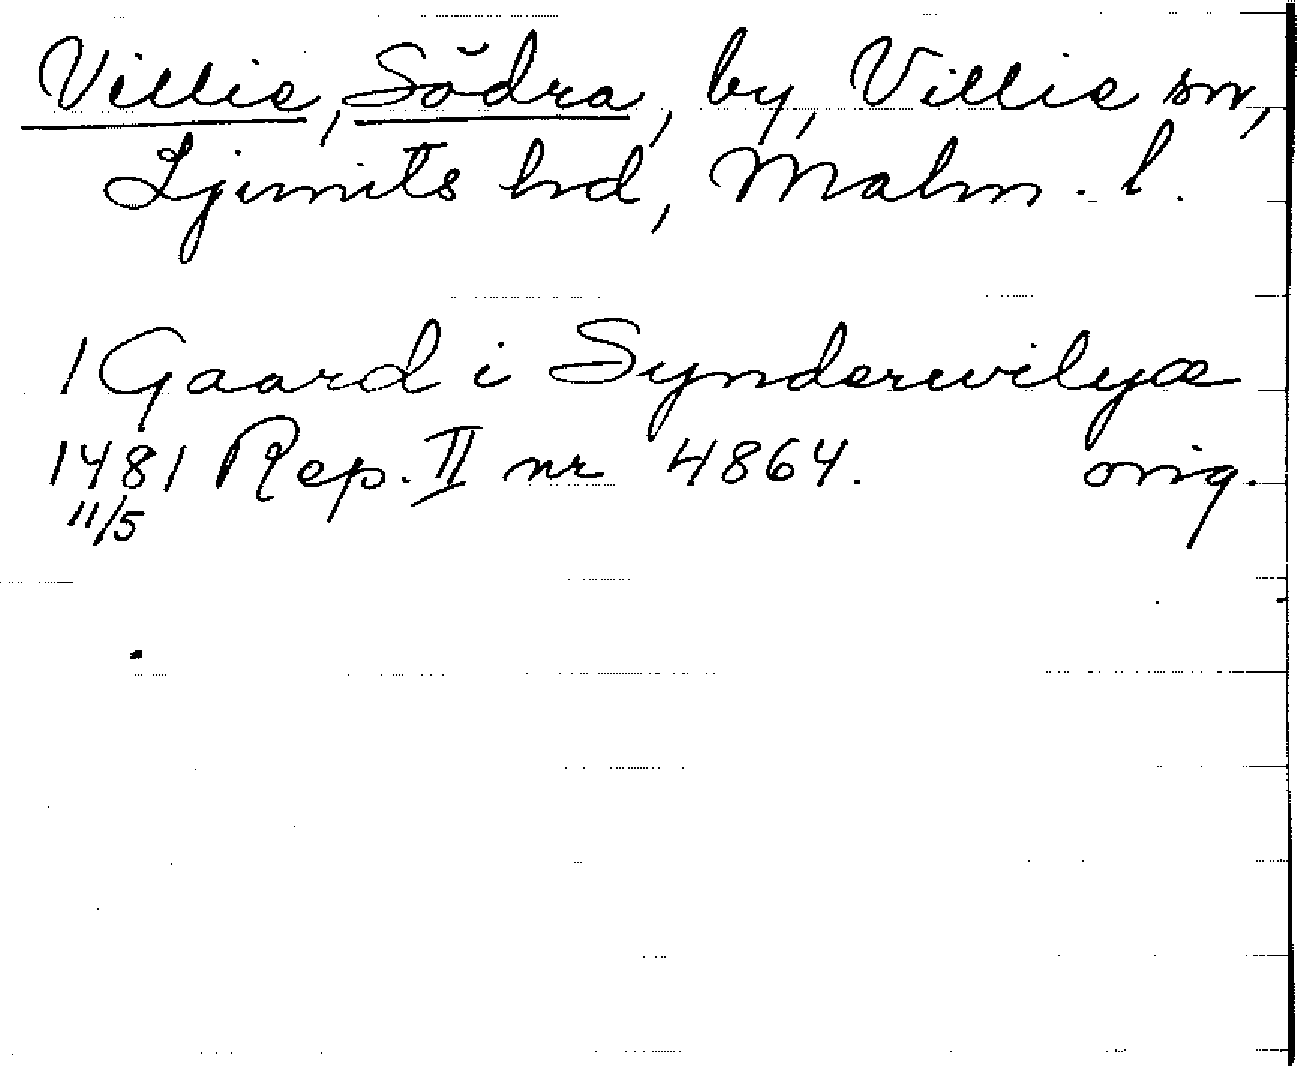 Villie, Södra, by, Villie sn,
Ljunits hd, Malm. l.
1 Gaard i Synderwilyæ
1481 Rep. II nr 4864. orig.
11/5